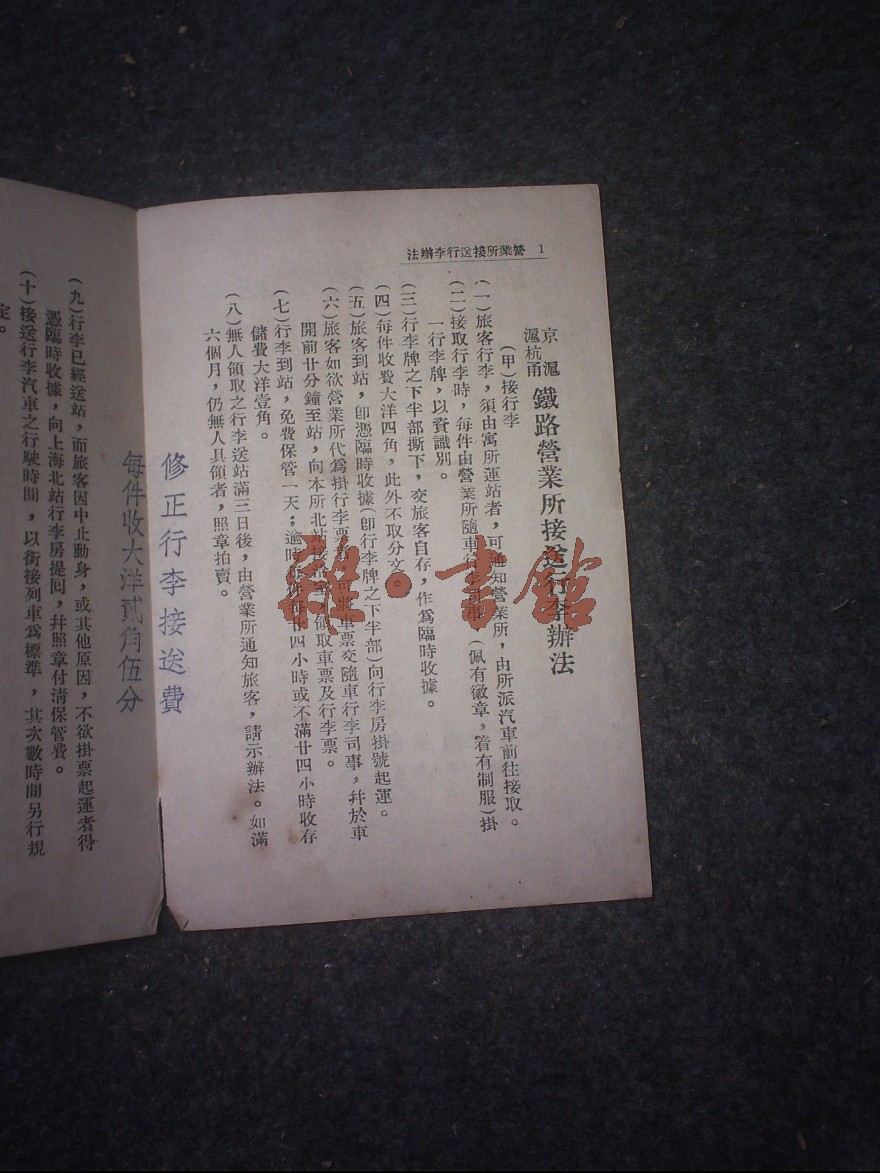 營業所接送行李辦法 1
京滬
滬杭甬
鐵路營業所接送行李辦法
(甲)接行李
(一)旅客行李,須由寓所運站者,可通知營業所,由所派汽車前往接取。
(二)接取行李時,每件由營業所隨車行李(佩有徽章,着有制服)掛
一行李牌,以資識別。
(三)行李牌之下半部撕下,交旅客自存,作爲臨時收據。
(四)每件收費大洋四角,此外不取分文。
(五)旅客到站,卽憑臨時收據(卽行李牌之下半部)向行李房掛號起運。
(六)旅客如欲營業所代爲掛行李票者,可將車票交隨車行李司事,幷於車
開前廿分鐘至站,向本所北站領取車票及行李票。
(七)行李到站,免費保管一天;逾時每件每廿四小時或不滿廿四小時收存
儲費大洋壹角。
(八)無人領取之行李送站滿三日後,由營業所通知旅客,請示辦法。如滿
六個月,仍無人具領者,照章拍賣。
修正行李接送費
每件收大洋貳角伍分
(九)行李已經送站,而旅客因中止動身,或其他原因,不欲掛票起運者得
憑臨時收據,向上海北站行李房提回,幷照章付清保管費。
(十)接送行李汽車之行駛時間,以銜接列車爲標準,其次數時間另行規
定。
雅·書館